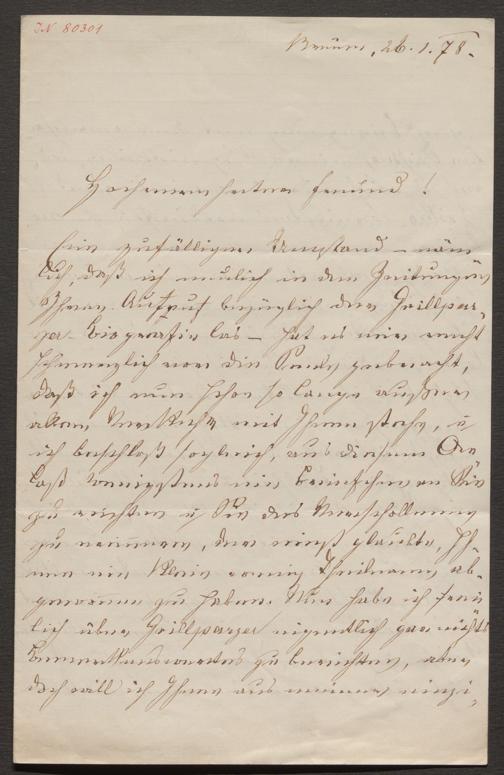 IN 80301
Brünn, 26.1.78.
Hochverehrter Freund!
Ein zufälliger Umstand – näm
lich, daß ich neulich in den Zeitungen
Ihren Aufruf bezüglich der Grillpar-
zer-Biografie las – hat es mir recht
schmerzlich vor die Seele gebracht,
daß ich nun schon so lange außer
allem Verkehr mit Ihnen stehe, u
ich beschloß sogleich, aus diesem An
laß wenigstens ein Briefchen an Sie
zu richten u Sie des Verschollenen
zu erinnern, der einst glaubte, Ih-
nen ein klein wenig Theilname ab-
gewonnen zu haben. Nun habe ich frei
lich über Grillparzer eigentlich gar nichts
Bemerkenswertes zu berichten, aber
doch will ich Ihnen aus meiner einzi-